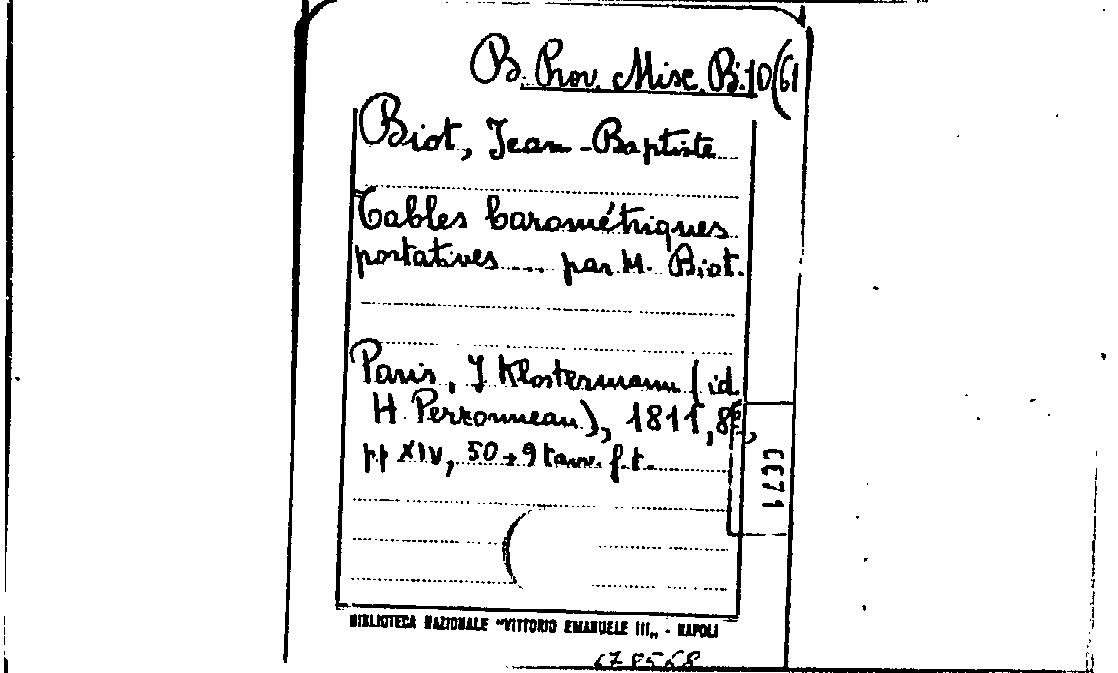 B. Prov. Misc. B. 10(61
Biot, Jean-Baptiste
Tables barométriques
portatives .... par M. Biot.
Paris, J Klostermann (id.
H. Perronneau), 1811, 8°,
pp XIV, 50+9 tavv. f.t.
BIBLIOTECA NAZIONALE "VITTORIO EMANUELE III„ - NAPOLI